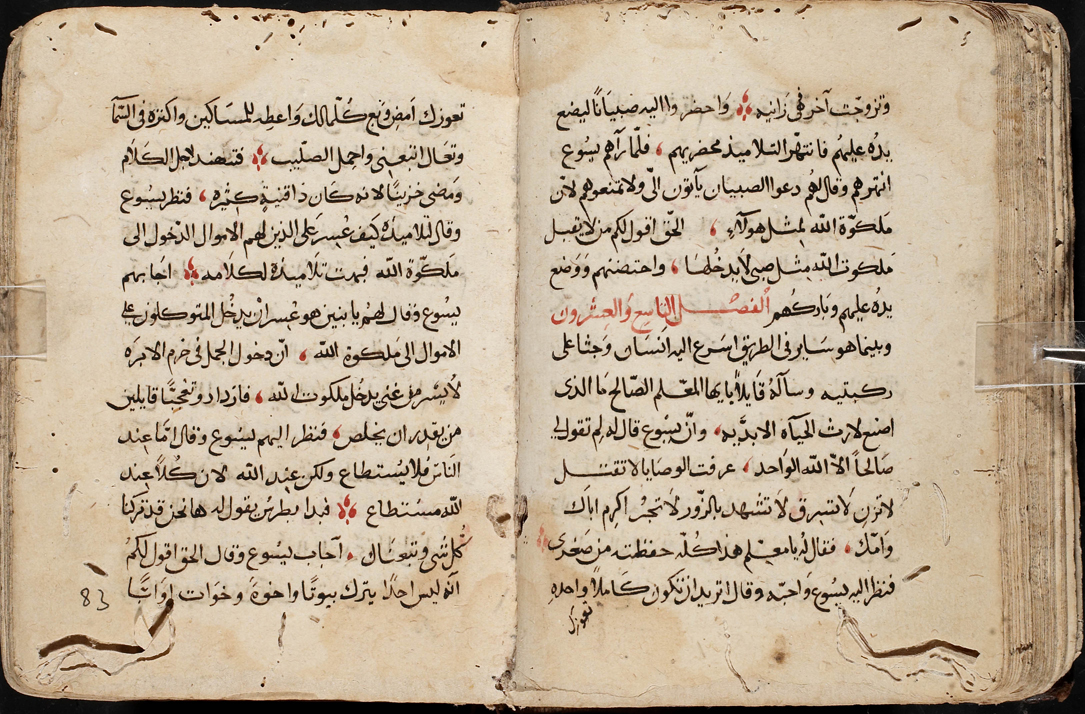 وتزوجت آخر فهي زانيه واحضروا اليه صبيانًا ليضع
يده عليهم فانتهر التلاميذ محضريهم، فلما رآهم يسوع
انتهرهم وقال لهم دعوا الصبيان يأتون الىّ ولا تمنعوهم لان
ملكوة الله لمثل هولآء، الحق اقول لكم من لا يقبل
ملكوت الله مثل صبي لا يدخلها، واحتضنهم ووضع
يده عليهم وباركهم الفصل التاسع والعشرون
وبينما هو ساير فى الطريق اسرع اليه انسان وجثا على
ركبتيه وسآله قايلاً يايها المعلم الصالح ما الذى
اصنع لارث الحيآه الابديه، وانّ يسوع قال له لم تقول لي
صالحًا الاّ الله الواحد، عرفت الوصايا لا تقتل
لا تزن لا تسرق لا تشهد بالزور لا تجر اكرم اباك
وامك، فقال له يا معلم هذا كله حفظته من صغرى
فنظر اليه يسوع واحبّه وقال اتريد ان تكون كاملاً واحده
تعوزك
تعوزك امض وبع كلما لك واعطه للمساكين واكنزه فى السّما
وتعال اتبعنى واحمل الصليب فتنهد لاجل الكلام
ومضى حزينًا لانه كان ذا قنية كثيره، فنظر يسوع
وقال لتلاميذه كيف عسر على الذين لهم الاموال الدخول الى
ملكوة الله فبهت تلاميذه لكلامه اجابهم
يسوع وقال لهم يا بنين هو عسر ان يدخل المتوكلون على
الاموال الى ملكوة الله، ان دخول الجمل فى خرم الابره
لأيسر من غنى يدخل ملكوت الله، فازدادو تعجبًا قايلين
من يقدر ان يخلص، فنظر اليهم يسوع وقال امّا عند
الناس فلا يستطاع ولكن عند الله لان كلاً عند
الله مستطاع فبدا بطرس يقول له ها نحن قد تركنا
كل شى وتبعناك، اجاب يسوع وقال الحق اقول لكم
انه ليس احدًا يترك بيوتًا واخوة وخوات او ابًا
83